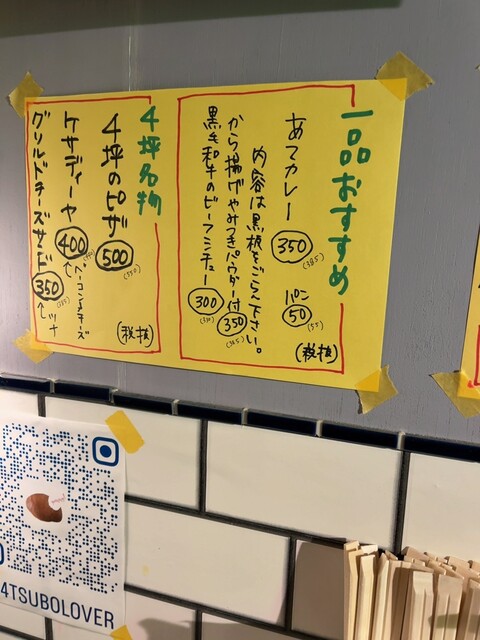 一品おすすめ
あてカレー 350 (385)
パン 50 (55)
内容は黒板をごらん下さい。
から揚げやみつきパウダー付 350 (385)
黒毛和牛のビーフシチュー 300 (330)
(税抜)
4坪名物
4坪のピザ 500 (550)
ケサディーヤ 400
ベーコンチーズ
グリルドチーズサンド 350 (385)
ツナ
(税抜)
4TSUBOLOVER